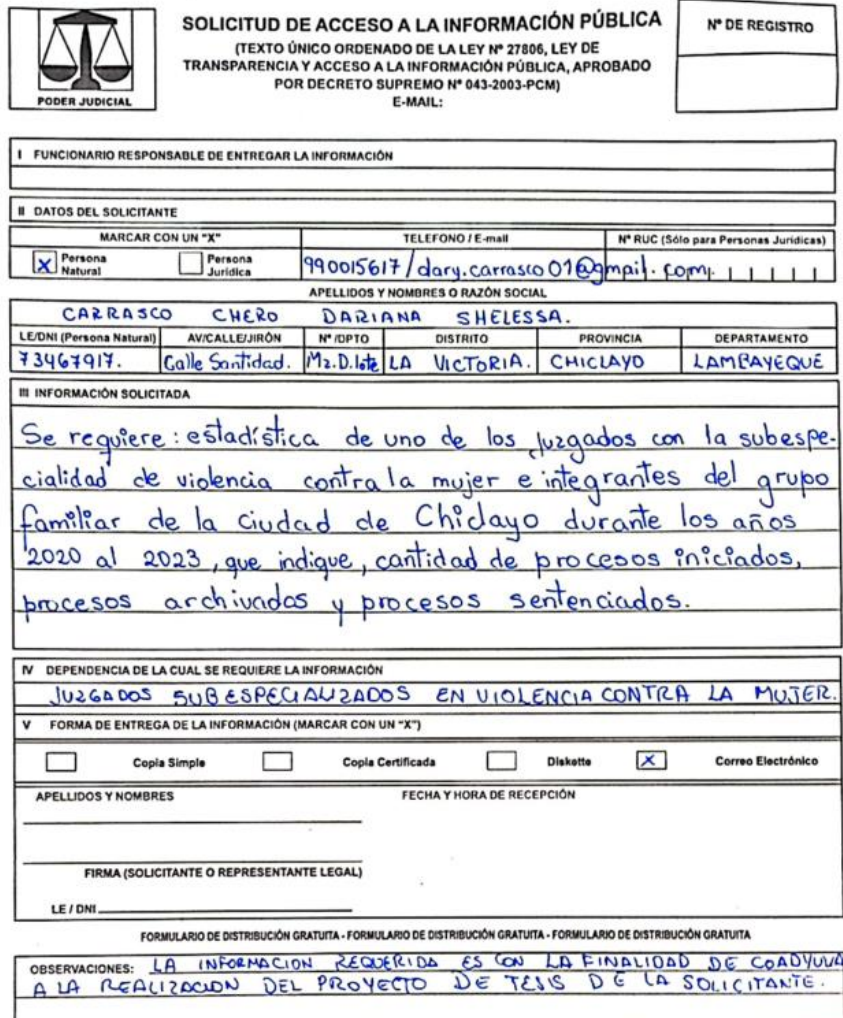 PODER JUDICIAL
SOLICITUD DE ACCESO A LA INFORMACIÓN PÚBLICA
(TEXTO ÚNICO ORDENADO DE LA LEY Nº 27806, LEY DE
TRANSPARENCIA Y ACCESO A LA INFORMACIÓN PÚBLICA, APROBADO
POR DECRETO SUPREMO Nº 043-2003-PCM)
E-MAIL:
Nº DE REGISTRO
I FUNCIONARIO RESPONSABLE DE ENTREGAR LA INFORMACIÓN
II DATOS DEL SOLICITANTE
MARCAR CON UN "X" TELEFONO / E-mail Nº RUC (Sólo para Personas Jurídicas)
X Persona Natural Persona Jurídica 990015617/dary.carrasco01@gmail.com.
APELLIDOS Y NOMBRES O RAZÓN SOCIAL
CARRASCO CHERO DARIANA SHELESSA.
LE/DNI (Persona Natural) AV/CALLE/JIRÓN Nº /DPTO DISTRITO PROVINCIA DEPARTAMENTO
73467917. Calle Santidad. Mz.D.lote LA VICTORIA. CHICLAYO LAMBAYEQUE
III INFORMACIÓN SOLICITADA
Se requiere: estadística de uno de los juzgados con la subespe-
cialidad de violencia contra la mujer e integrantes del grupo
familiar de la ciudad de Chiclayo durante los años
2020 al 2023, que indique, cantidad de procesos iniciados,
procesos archivados y procesos sentenciados.
IV DEPENDENCIA DE LA CUAL SE REQUIERE LA INFORMACIÓN
JUZGADOS SUBESPECIALIZADOS EN VIOLENCIA CONTRA LA MUJER.
V FORMA DE ENTREGA DE LA INFORMACIÓN (MARCAR CON UN "X")
Copia Simple Copia Certificada Diskette X Correo Electrónico
APELLIDOS Y NOMBRES FECHA Y HORA DE RECEPCIÓN
FIRMA (SOLICITANTE O REPRESENTANTE LEGAL)
LE / DNI
FORMULARIO DE DISTRIBUCIÓN GRATUITA - FORMULARIO DE DISTRIBUCIÓN GRATUITA - FORMULARIO DE DISTRIBUCIÓN GRATUITA
OBSERVACIONES: LA INFORMACION REQUERIDA ES CON LA FINALIDAD DE COADYUVA
A LA REALIZACION DEL PROYECTO DE TESIS DE LA SOLICITANTE.